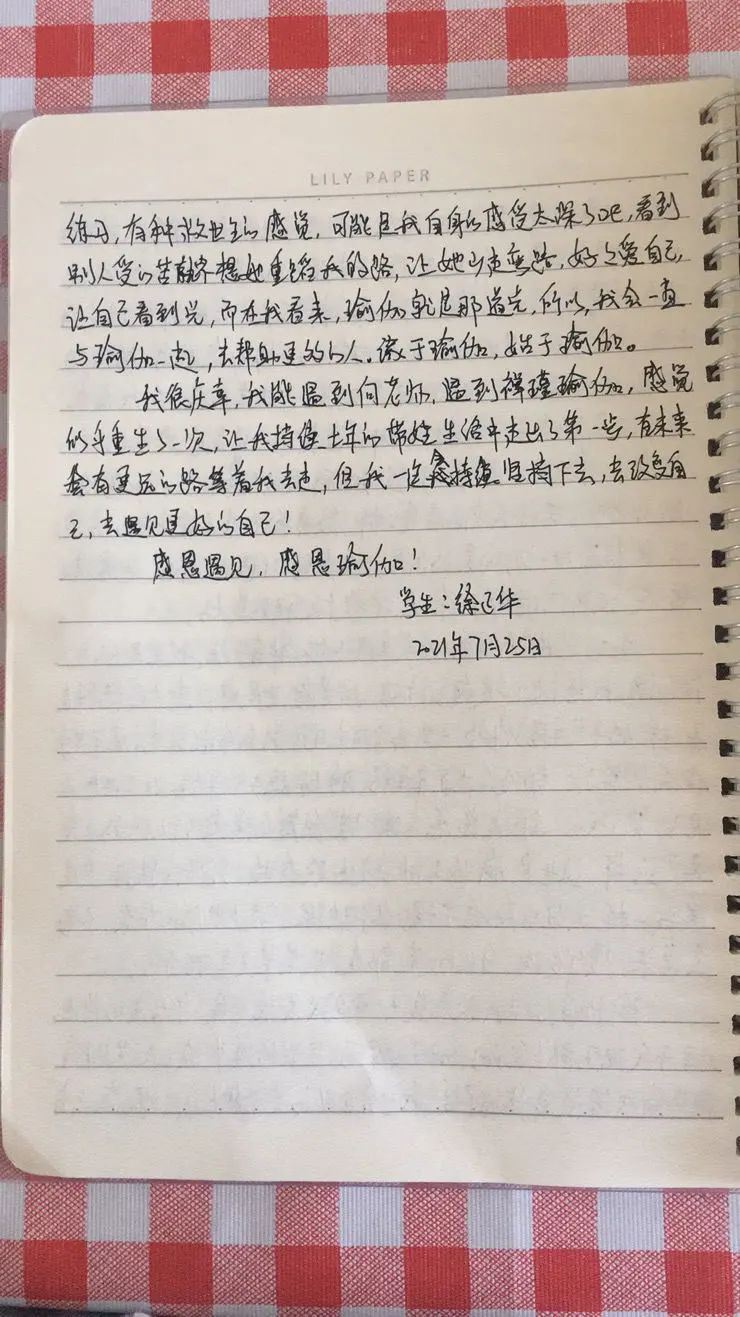 LILY PAPER
练习，有种救世主的感觉，可能是我自身的感受太深了吧，看到
别人受的苦就不想她重蹈我的路，让她少走弯路，好好爱自己，
让自己看到光，而在我看来，瑜伽就是那道光，所以，我会一直
与瑜伽一起，去帮助更多的人。缘于瑜伽，始于瑜伽。
我很庆幸，我能遇到何老师，遇到禅瑾瑜伽，感觉
似乎重生了一次，让我持续十年的带娃生活中走出了第一步，有未来
会有更远的路等着我去走，但我一定会持续坚持下去，去改变自
己，去遇见更好的自己！
感恩遇见，感恩瑜伽！
学生：徐 华
2021年7月25日